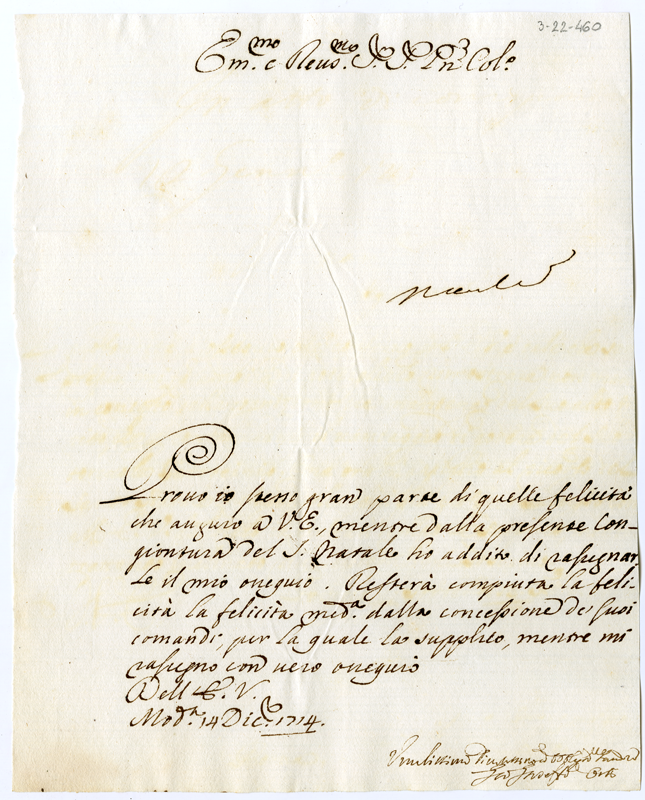 3-22-460
Em.mo e Reuo.mo S.r S.r Pn'e Col.o
Prouo io stesso gran parte di quelle felicità
che auguro à V.E., mentre dalla presente Con-
giontura del S. Natale ho addito di rasegnar
Le il mio ossequio. Resterà compiuta la feli-
cità la felicità med.a dalla concessione de' suoi
comandi, per la quale la supplico, mentre mi
rasegno con vero ossequio
Dell' E. V.
Mod.a 14 Dic.e 1714.